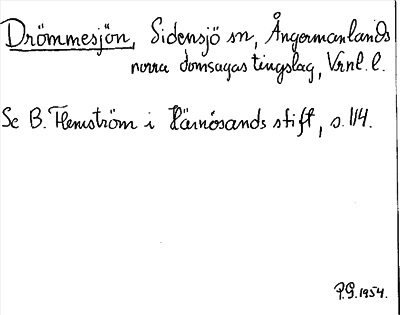 Drömmesjön, Sidensjö sn, Ångermanlands
norra domsagas tingslag, Vrnl. l.
Se B. Flemström i Härnösands stift, s. 114.
P.G. 1954.